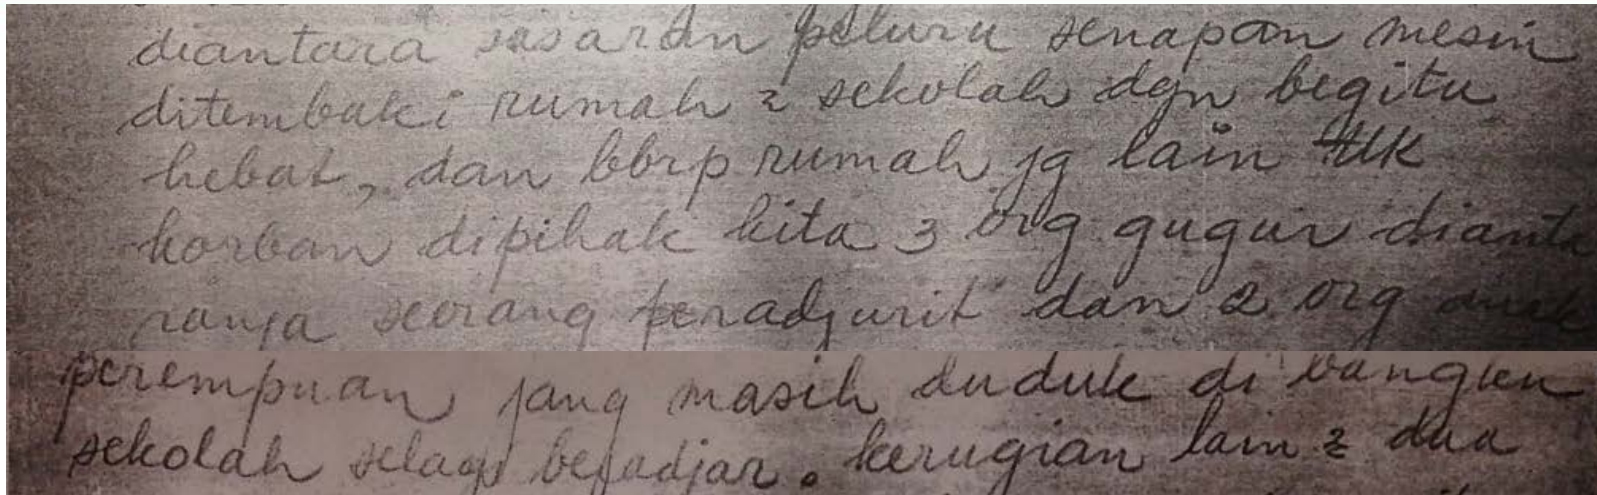 diantara sasaran peluru senapan mesin
ditembaki rumah 2 sekolah dgn begitu
hebat, dan bbrp rumah jg lain utk
korban dipihak kita 3 org gugur dianta
ranja seorang peradjurit dan 2 org anak
perempuan jang masih duduk di bangku
sekolah selagi beladjar. kerugian lain 2 dua